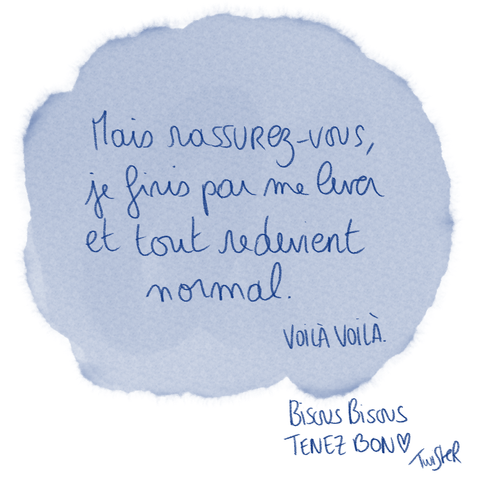 Mais rassurez-vous,
je finis par me lever
et tout redevient
normal.
VOILÀ VOILÀ.
Bisous Bisous
TENEZ BON♡
TwisteR